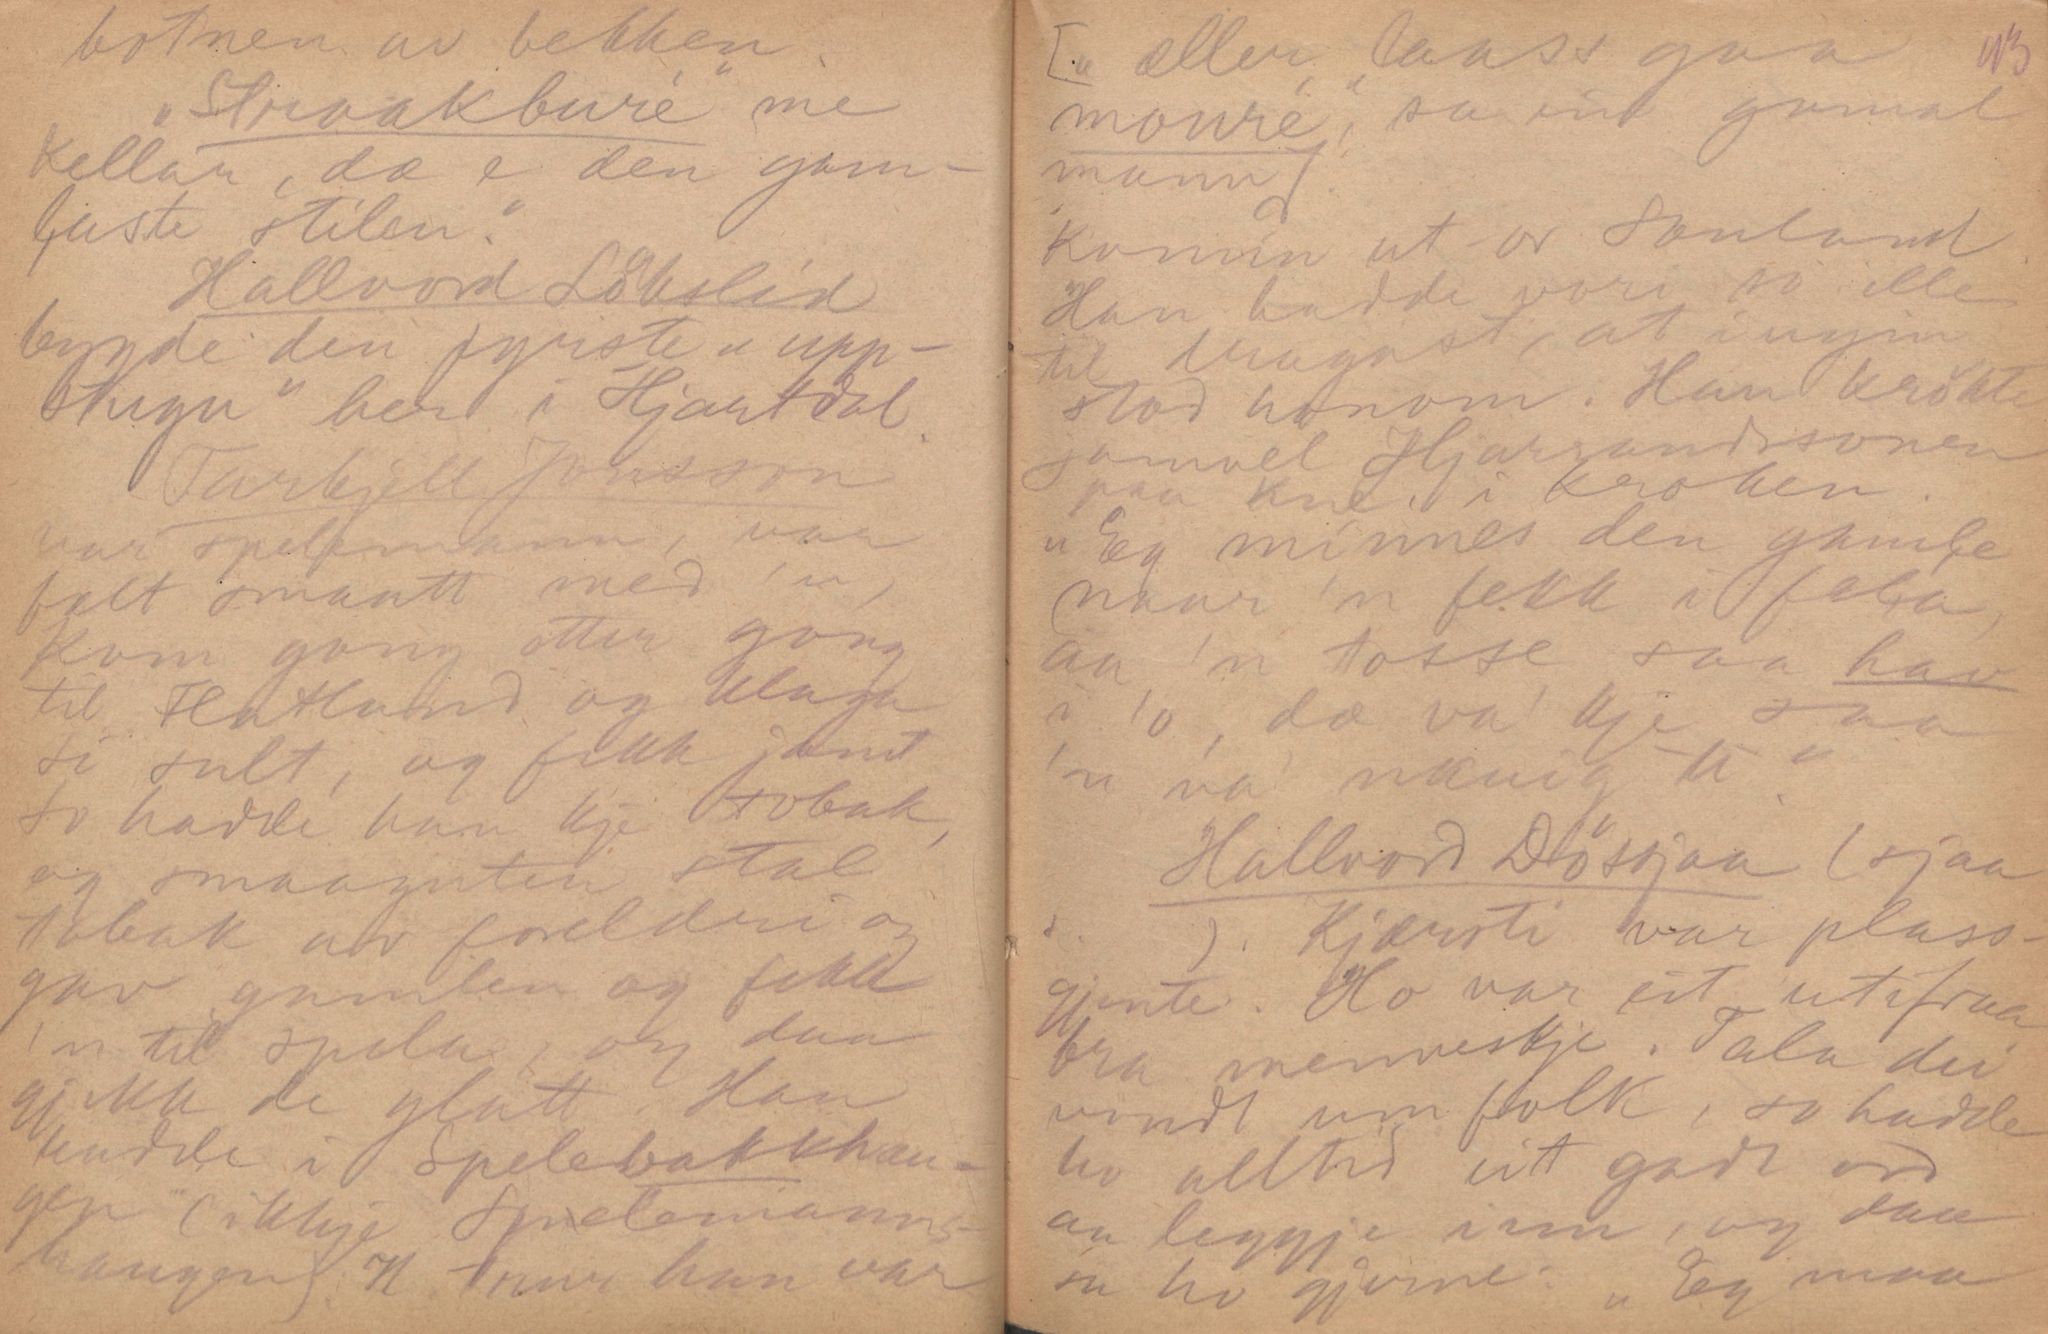 botnen av bekken.
"Straakbure" me
kellar, dæ e den gam-
laste stilen."
Hallvord Løkslid
bygde den fyrste "upp-
stugu" her i Hjartdal.
Tarkjell Jonsson
var spelemann, var
falt smaatt med 'n,
kom gong etter gong
til Flatland og klaga
si sult, og fekk jamt
so hadde han kje tobak,
og smaaguten stal
tobak av foreldri og
gav gamlen og fekk
'n til spela, og daa
gjekk de glatt. Han
budde i Spelebakkhau-
gen (ikkje Spelemanns-
haugen). H. trur han var
["æller, laass gaa 43
moure", sa ein gamal
mann].
komin ut or Sauland.
Han hadde vore so ille
til dragast, at ingin
stod honom. Han krøkte
gamael Hjarrandssonen
paa kne i kroken.
"Eg minnes den gamle
naar 'n fekk i fela,
aa 'n tosse saa hav
i 'o, dæ va' kje saa
'n va' ukuig ti."
Hallvord Døsjaa (sjaa
s. ). Kjærsti var plass-
gjente. Ho var eit utifraa
bra menneskje. Tala dei
vondt um folk, so hadde
ho alltid eit godt ord
aa leggje inn, og daa
sa ho gjerne: "Eg maa